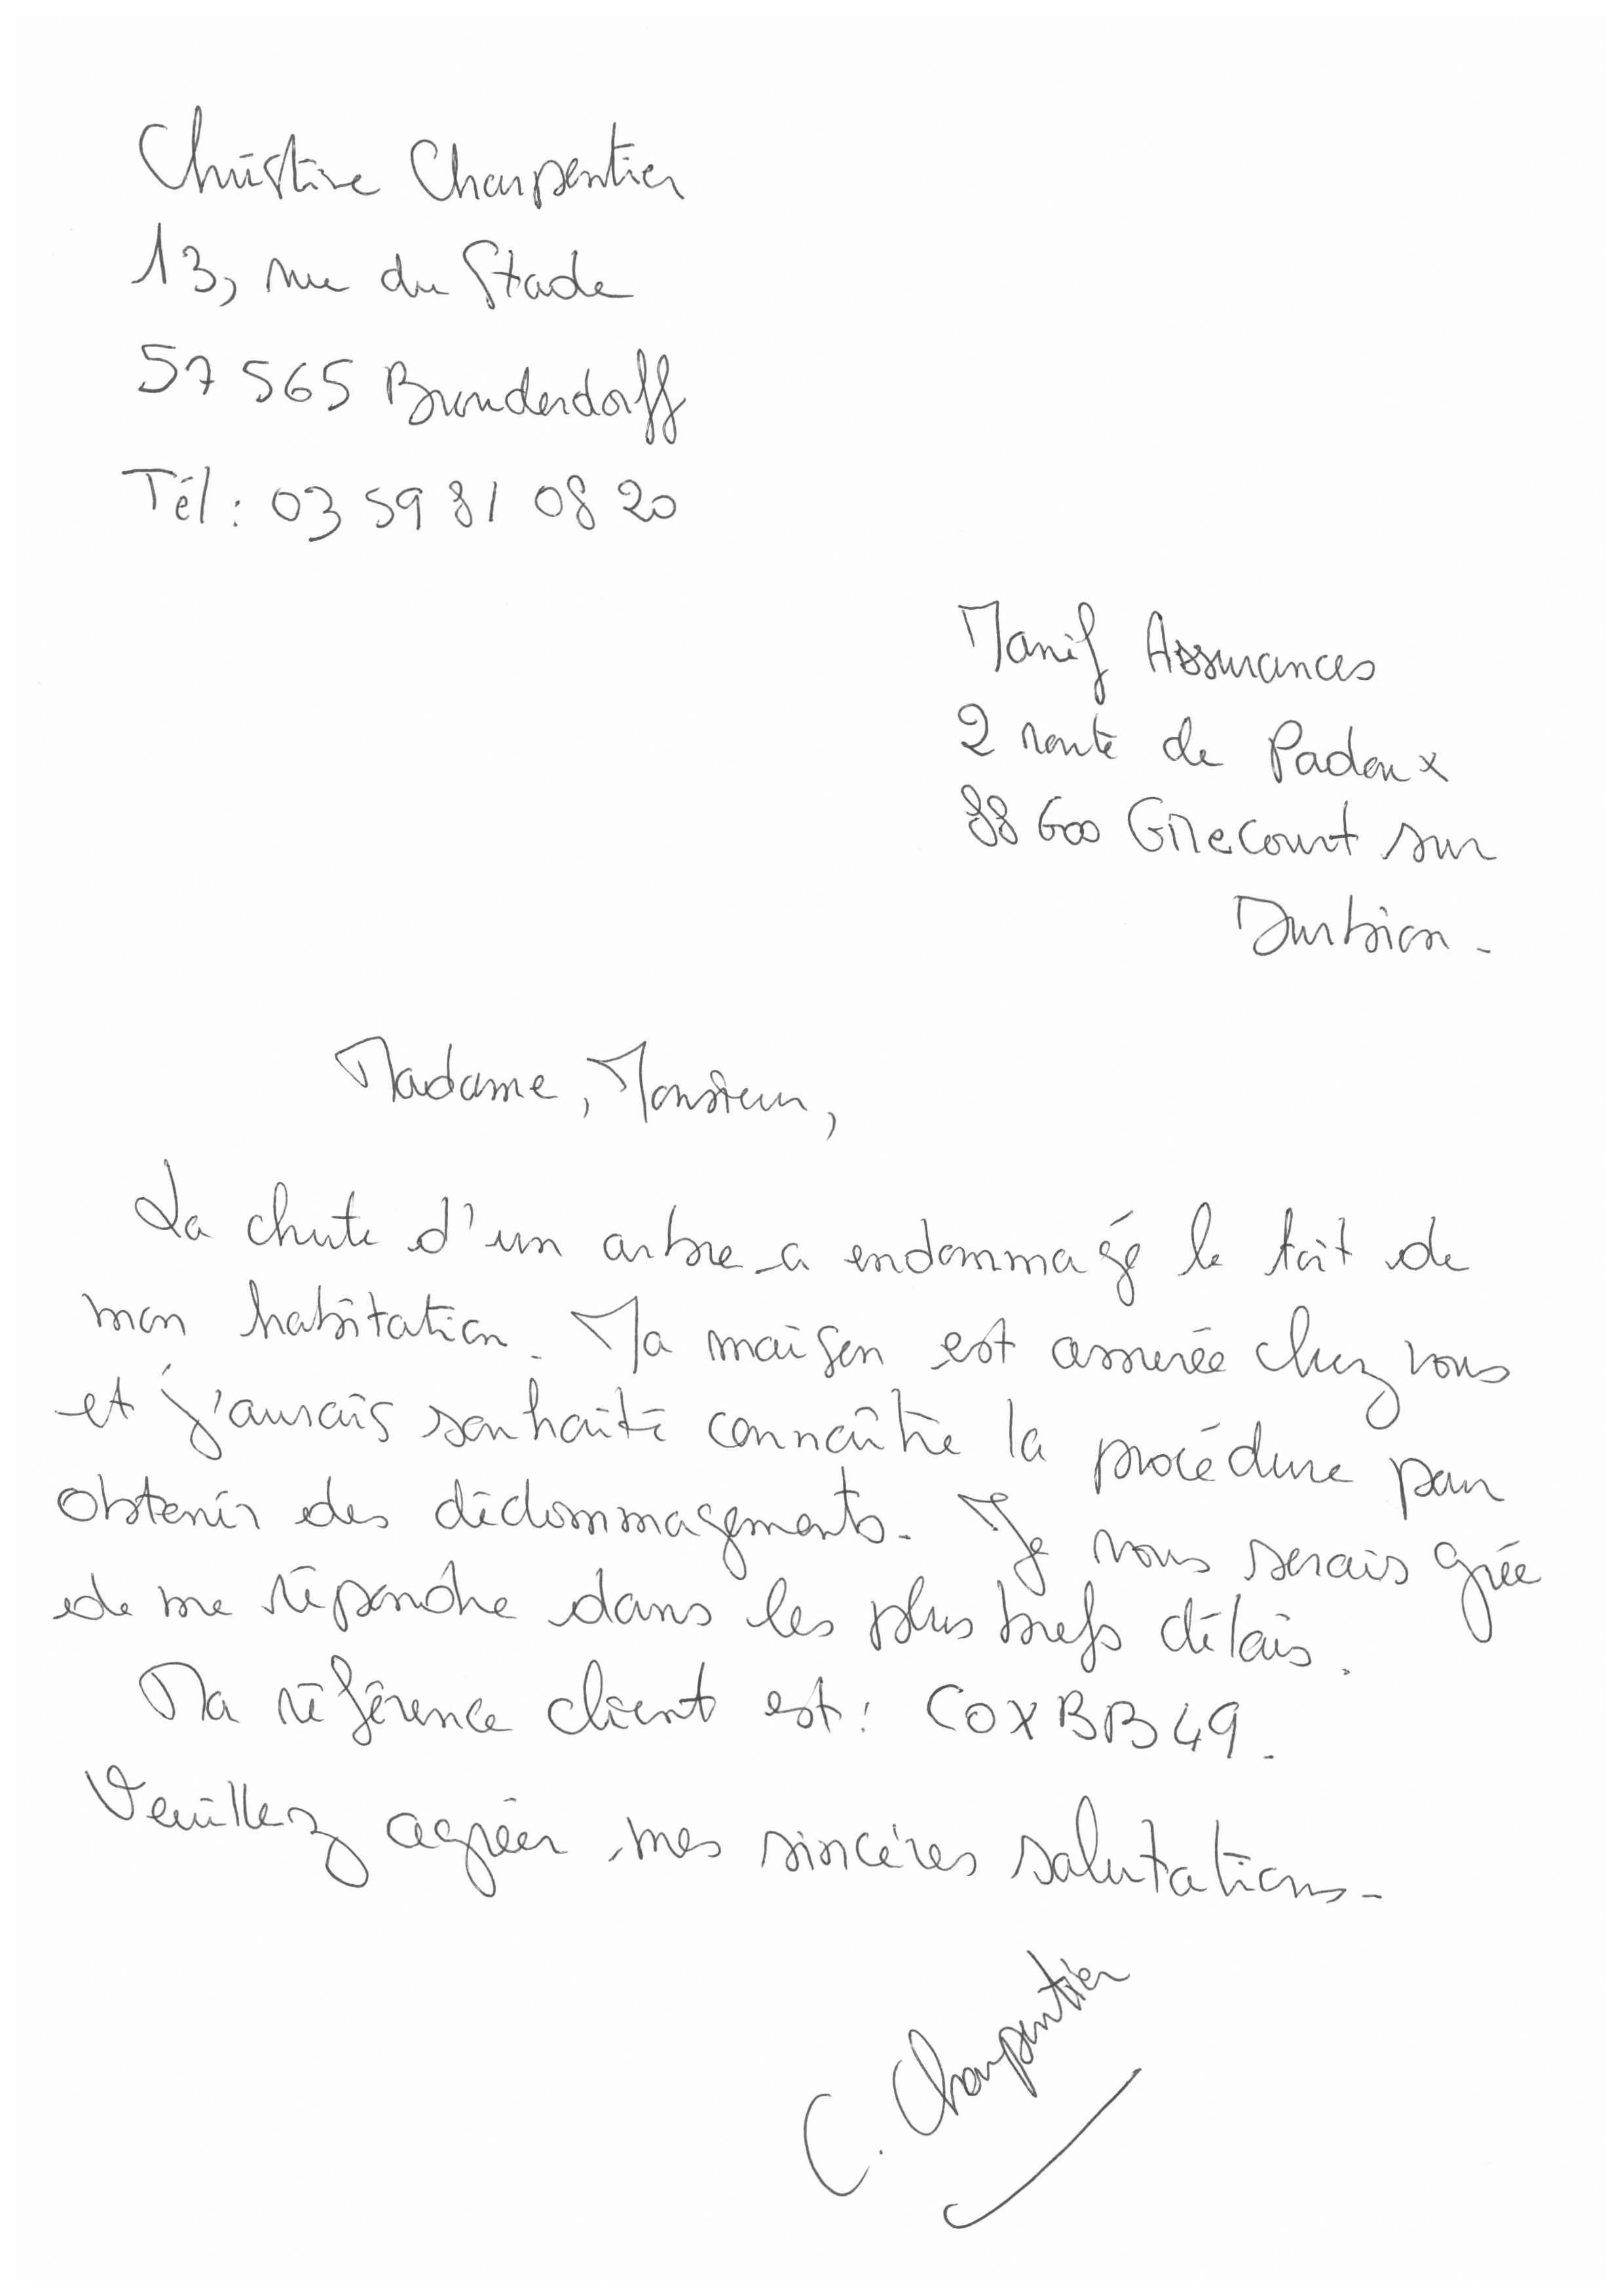 Christine Charpentier
13, rue du Stade
57 565 Brouderdorff
Tél : 03 59 81 08 20
Manif Assurances
2 route de Padoux
88 600 Girecourt sur
Durbion.
Madame, Monsieur,
La chute d'un arbre a endommagé le toit de
mon habitation. Ma maison est assurée chez vous
et j'aurais souhaité connaître la procédure pour
obtenir des dédommagements. Je vous serais grée
de me répondre dans les plus brefs délais.
Ma référence client est : COXBB49.
Veuillez agréer mes sincères salutations.
C. Charpentier